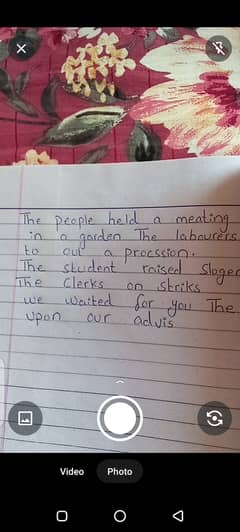 The people held a meating
in a garden The labourers
to out a procssion.
The student raised Sloger
The Clerks on striks
we waited for you The
upon our advis
Video Photo